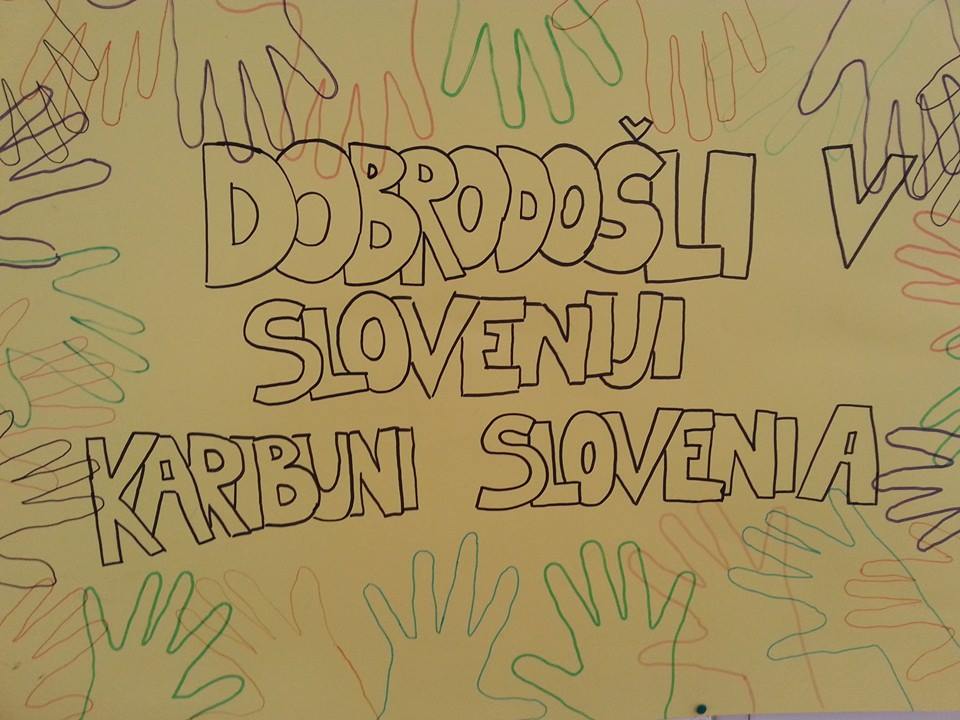 DOBRODOŠLI V
SLOVENIJI
KARIBUNI SLOVENIA